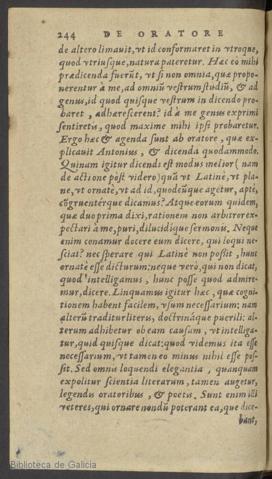 244 DE ORATORE
de altero limauit, vt id conformaret in vtroque,
quod vtriusque, natura pateretur. Hæc eò mihi
prædicenda fuerūt, vt si non omnia, quæ propo-
nerentur à me, ad omniū vestrum studiū, & ad
genus, id quod quisque vestrum in dicendo pro-
baret, adhærescerent: id à me genus exprimi
sentiretis, quod maxime mihi ipsi probaretur.
Ergo hæc & agenda sunt ab oratore, quæ ex-
plicauit Antonius, & dicenda quodammodo.
Quinam igitur dicendi est modus melior (nam
de actione pòst videro) quā vt Latinè, vt pla-
ne, vt ornatè, vt ad id, quodcūque agetur, aptè,
cōgruentérque dicamus? Atque eorum quidem,
quæ duo prima dixi, rationem non arbitror ex-
pectari à me, puri, dilucidique sermonis. Neque
enim conamur docere eum dicere, qui loqui ne-
sciat? nec sperare qui Latinè non possit, hunc
ornatè esse dicturum: neque verò, qui non dicat,
quod intelligamus, hunc posse quod admire-
mur, dicere. Linquamus igitur hæc, quæ cogni-
tionem habent facilem, vsum necessarium: nam
alterū traditur literis, doctrinàque puerili: al-
terum adhibetur ob eam causam, vt intelliga-
tur, quid quisque dicat: quod videmus ita esse
necessarium, vt tamen eo minus nihil esse pos-
sit. Sed omnis loquendi elegantia, quanquam
expolitur scientia literarum, tamen augetur,
legendis oratoribus, & poetis, Sunt enim illi
veteres, qui ornare nondū poterant ea, quæ dice-
bant,
Biblioteca de Galicia